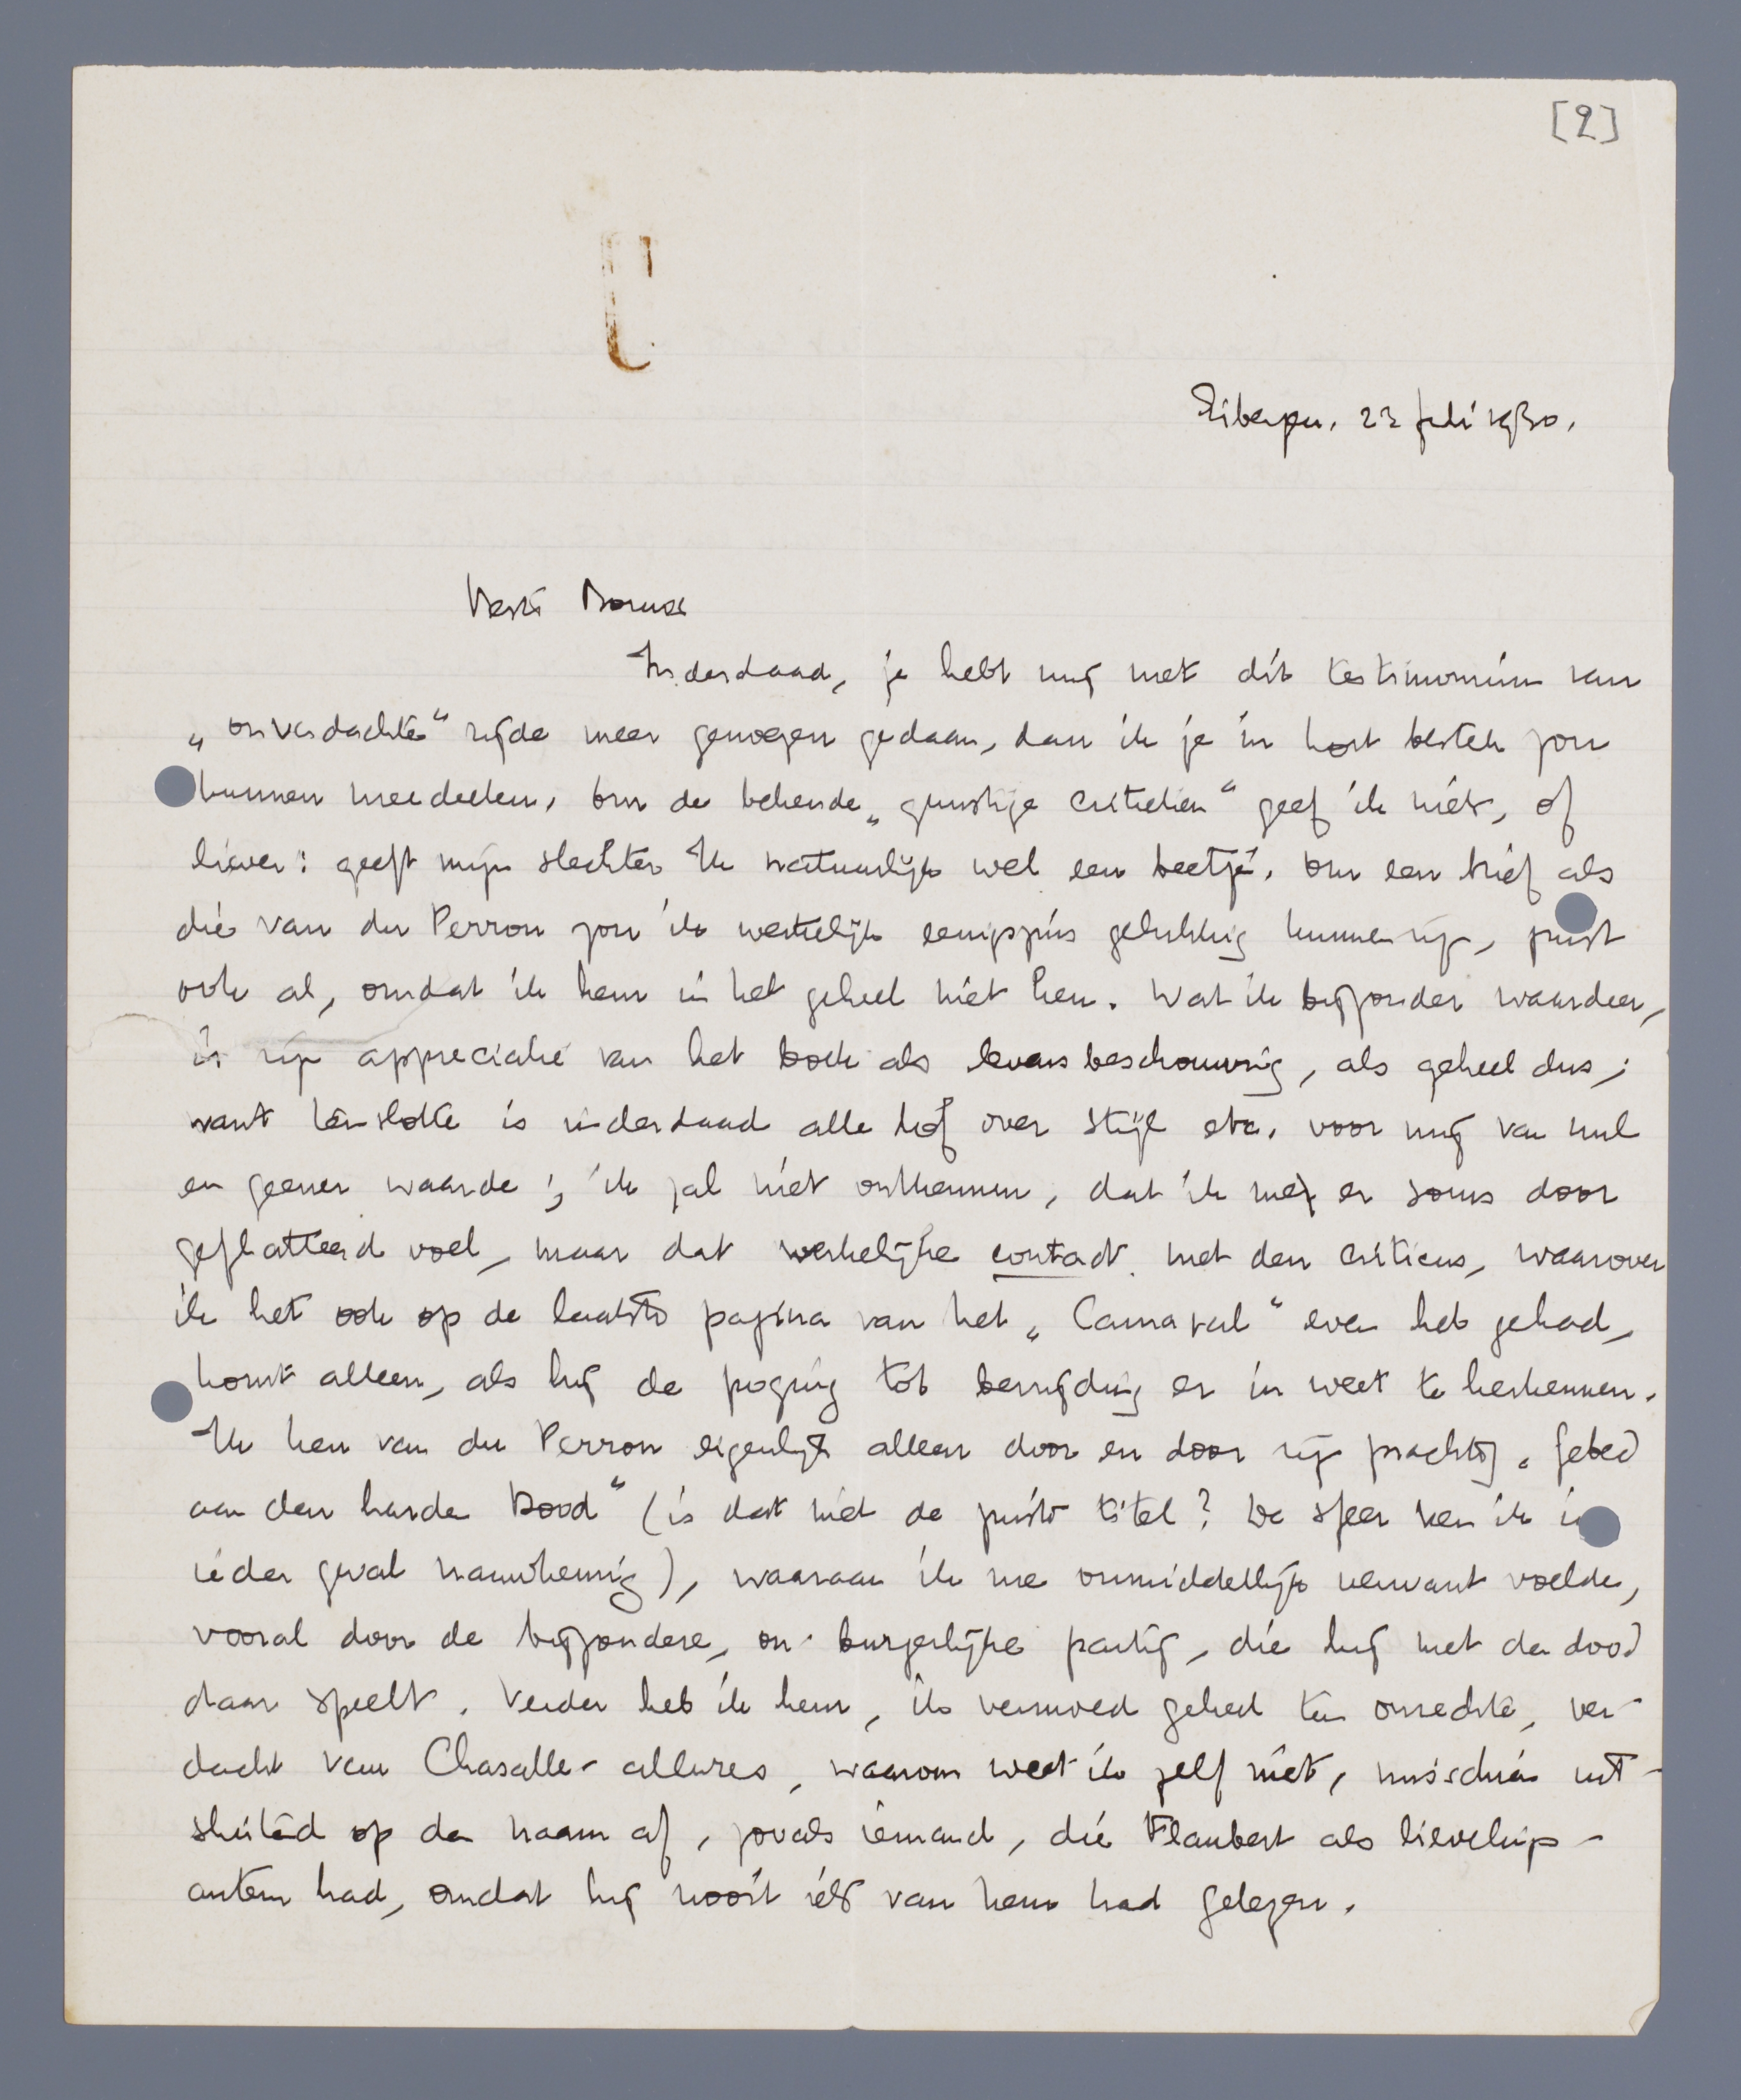 [2]
Eibergen, 23 juli 1930.
Beste Bouws
Inderdaad, je hebt mij met dit testimonium van
„onverdachte“ zijde meer genoegen gedaan, dan ik je in kort bestek zou
kunnen meedeelen. Om de bekende „gunstige critieken“ geef ik niet, of
liever: geeft mijn slechter Ik natuurlijk wel een beetje. Om een brief als
die van du Perron zou ik werkelijk eenigszins gelukkig kunnen zijn, juist
ook al, omdat ik hem in het geheel niet ken. Wat ik bijzonder waardeer,
is zijn appreciatie van het boek als levensbeschouwing, als geheel dus;
want tenslotte is inderdaad alle lof over stijl etc. voor mij van nul
en geener waarde; ik zal niet ontkennen, dat ik mij er soms door
geflatteerd voel, maar dat werkelijke contact met den criticus, waarover
ik het ook op de laatste pagina van het „Carnaval“ even heb gehad,
komt alleen, als hij de poging tot bevrijding er in weet te herkennen.
Ik ken van du Perron eigenlijk alleen door en door zijn prachtig „Gebed
aan den harden Dood“ (is dat niet de juiste titel? De sfeer ken ik in
ieder geval nauwkeurig), waaraan ik me onmiddellijk verwant voelde,
vooral door de bijzondere, on-burgerlijke partij, die hij met den dood
daar speelt. Verder heb ik hem, ik vermoed geheel ten onrechte, ver-
dacht van Chasalle-allures, waarom weet ik zelf niet, misschien uit-
sluitend op den naam af, zooals iemand, die Flaubert als lievelings-
auteur had, omdat hij nooit iets van hem had gelezen.